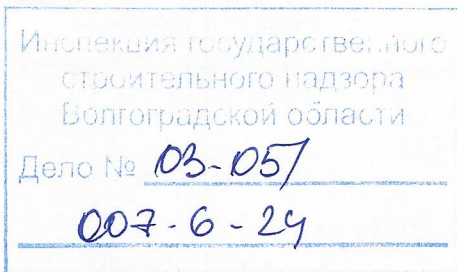 Инспекция государственного
строительного надзора
Волгоградской области
Дело № 03-05/
007-6-24